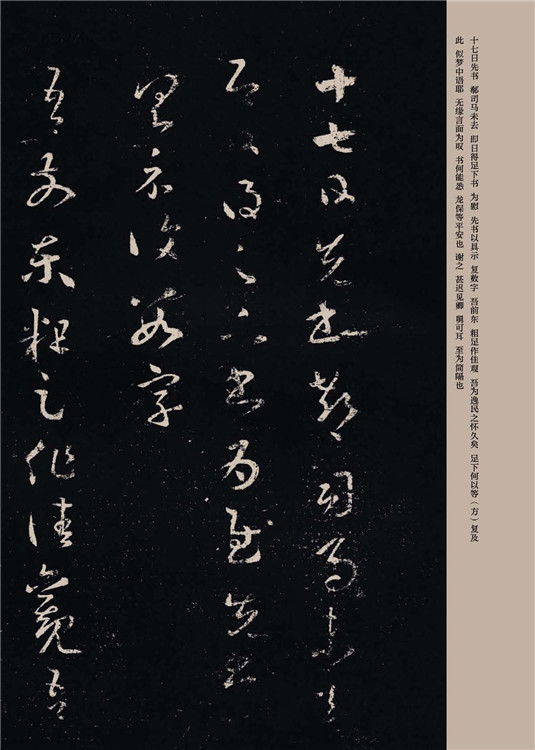 十七日先书 郗司马未去 即日得足下书 为慰 先书以具示 复数字 吾前东 粗足作佳观 吾为逸民之怀久矣 足下何以等（方）复及
此 似梦中语耶 无缘言面为叹 书何能悉 龙保等平安也 谢之 甚迟见卿 舅可耳 至为简隔也
十七日先書郗司馬未去
即日得足下書為慰先書以
具示復數字
吾前東粗足作佳觀吾